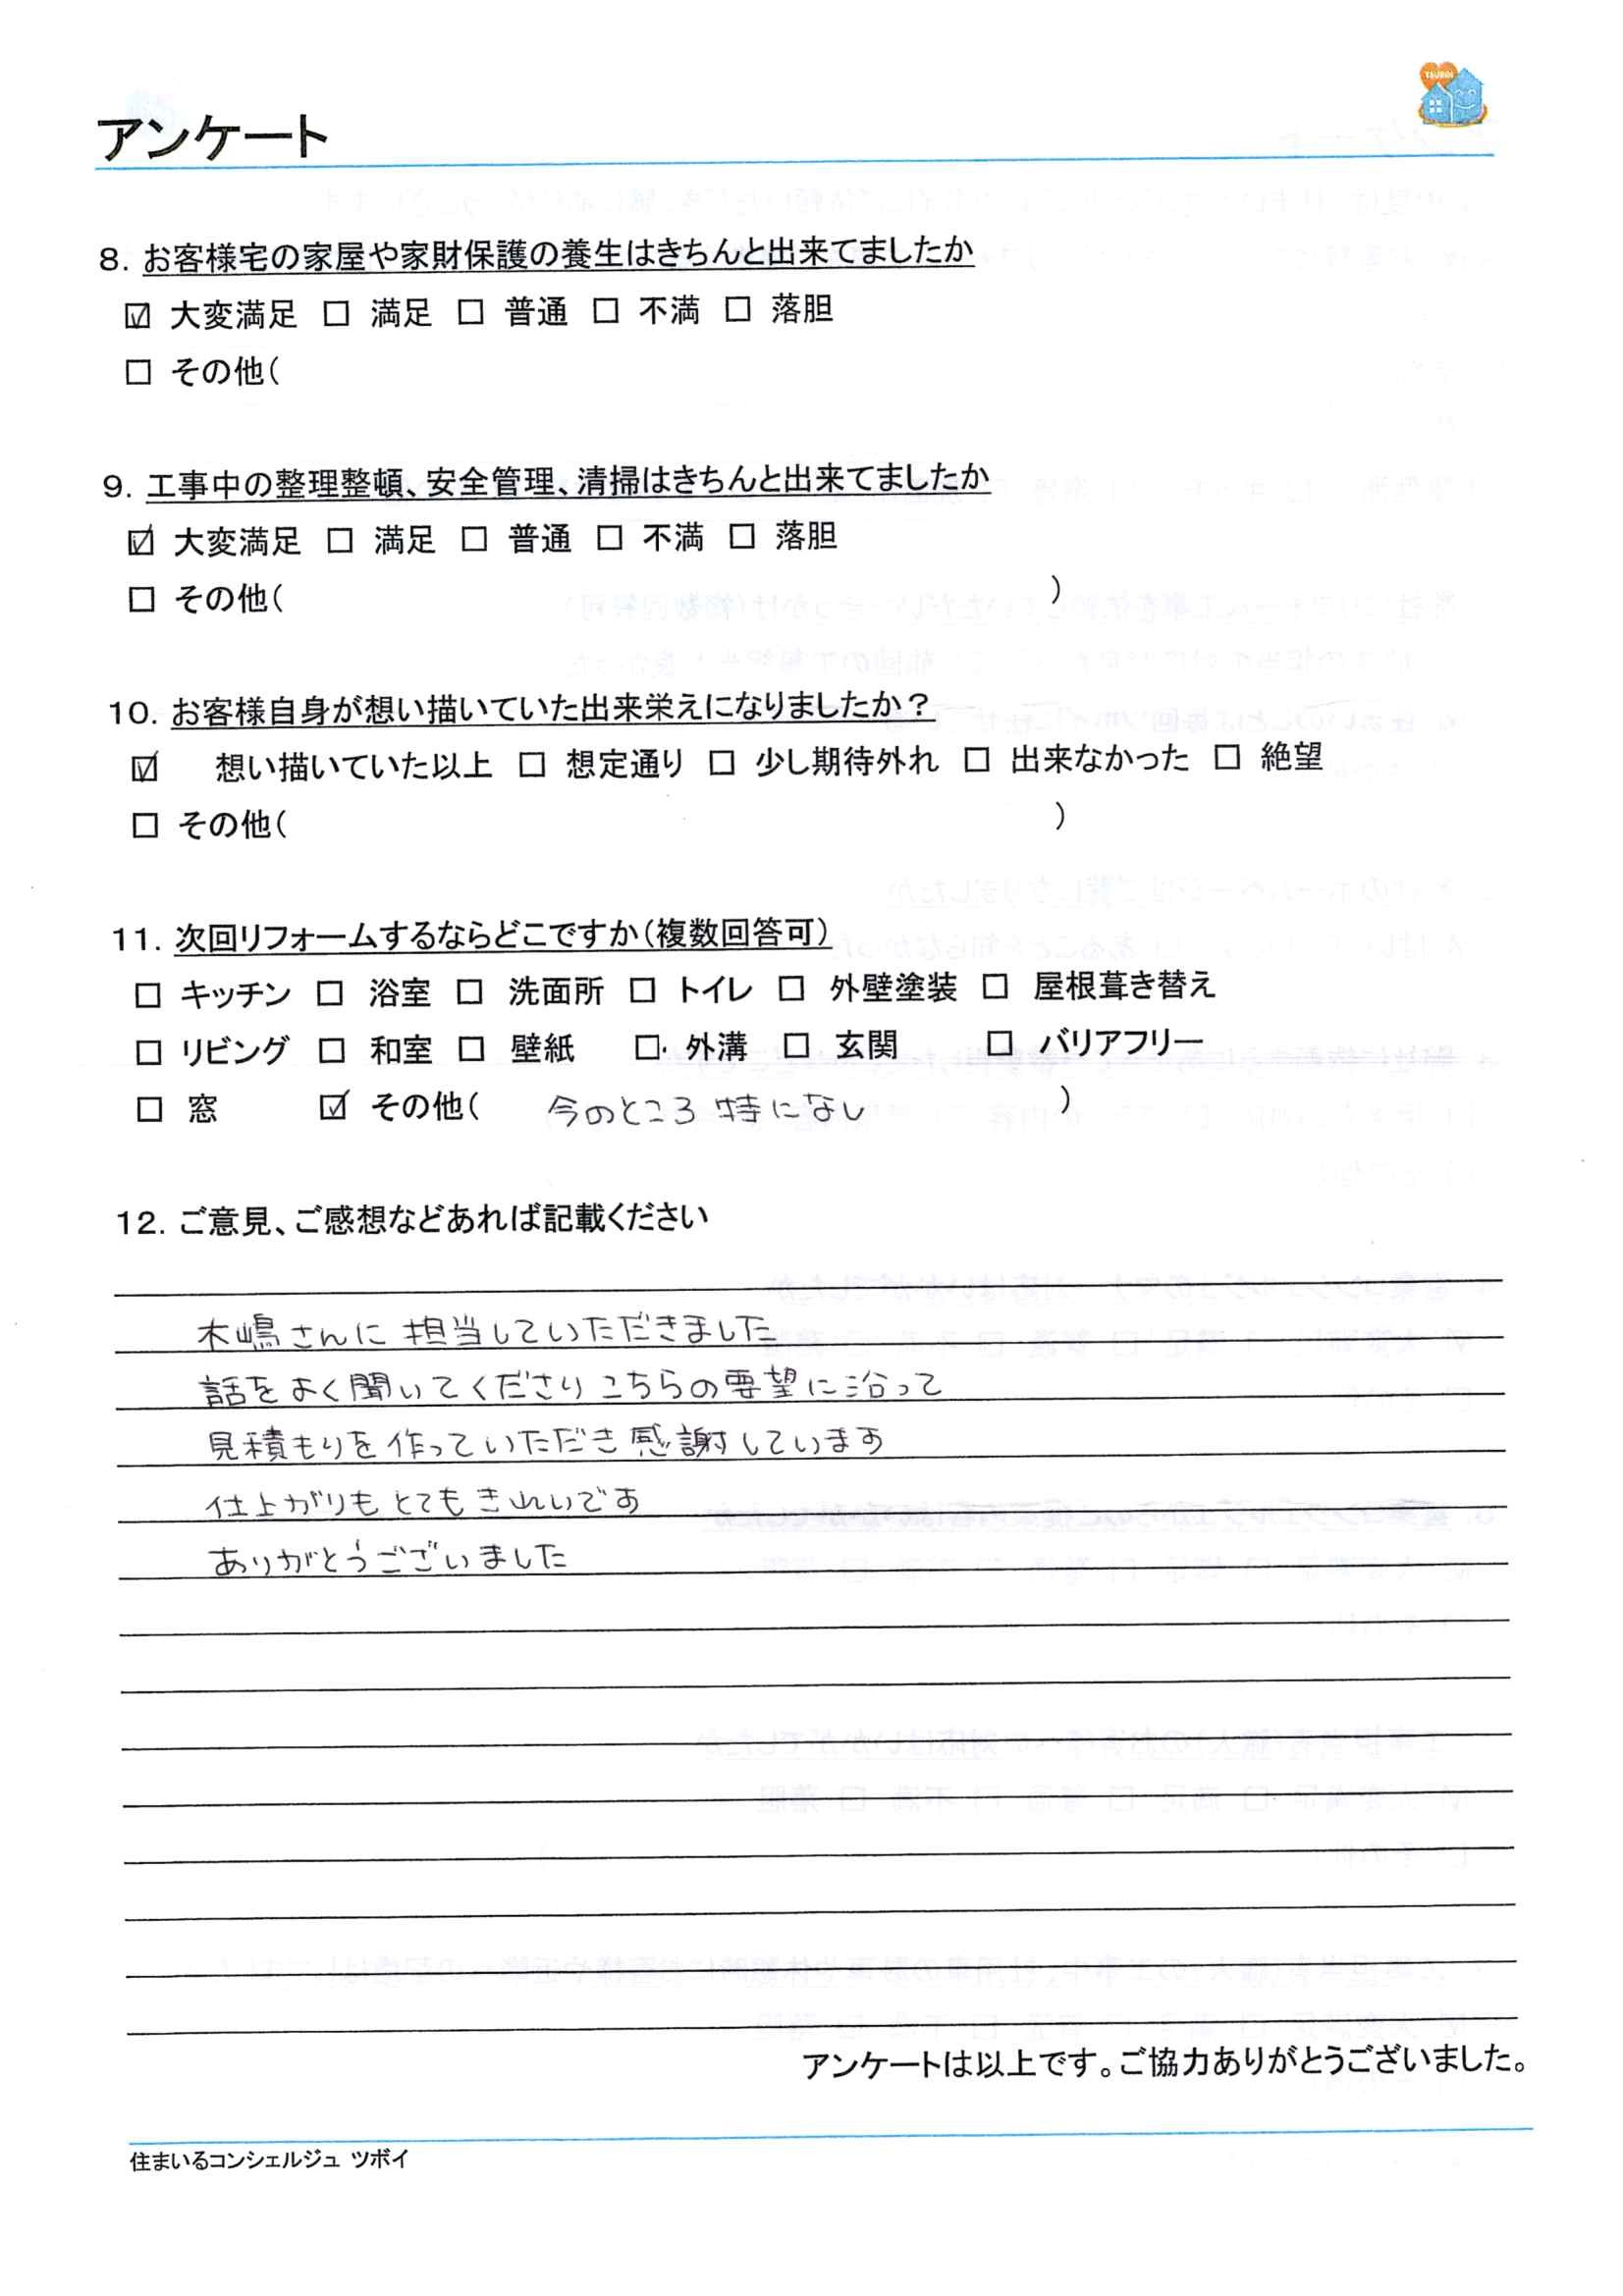 TSUBOI
アンケート
8. お客様宅の家屋や家財保護の養生はきちんと出来てましたか
☑ 大変満足 □ 満足 □ 普通 □ 不満 □ 落胆
□ その他(
9. 工事中の整理整頓、安全管理、清掃はきちんと出来てましたか
☑ 大変満足 □ 満足 □ 普通 □ 不満 □ 落胆
□ その他( )
10. お客様自身が想い描いていた出来栄えになりましたか？
☑ 想い描いていた以上 □ 想定通り □ 少し期待外れ □ 出来なかった □ 絶望
□ その他( )
11. 次回リフォームするならどこですか(複数回答可)
□ キッチン □ 浴室 □ 洗面所 □ トイレ □ 外壁塗装 □ 屋根葺き替え
□ リビング □ 和室 □ 壁紙 □ 外溝 □ 玄関 □ バリアフリー
□ 窓 ☑ その他( 今のところ 特になし )
12. ご意見、ご感想などあれば記載ください
木嶋さんに 担当していただきました
話をよく聞いてくださり こちらの要望に沿って
見積もりを作っていただき感謝しています
仕上がりもとてもきれいです
ありがとうございました
アンケートは以上です。ご協力ありがとうございました。
住まいるコンシェルジュ ツボイ